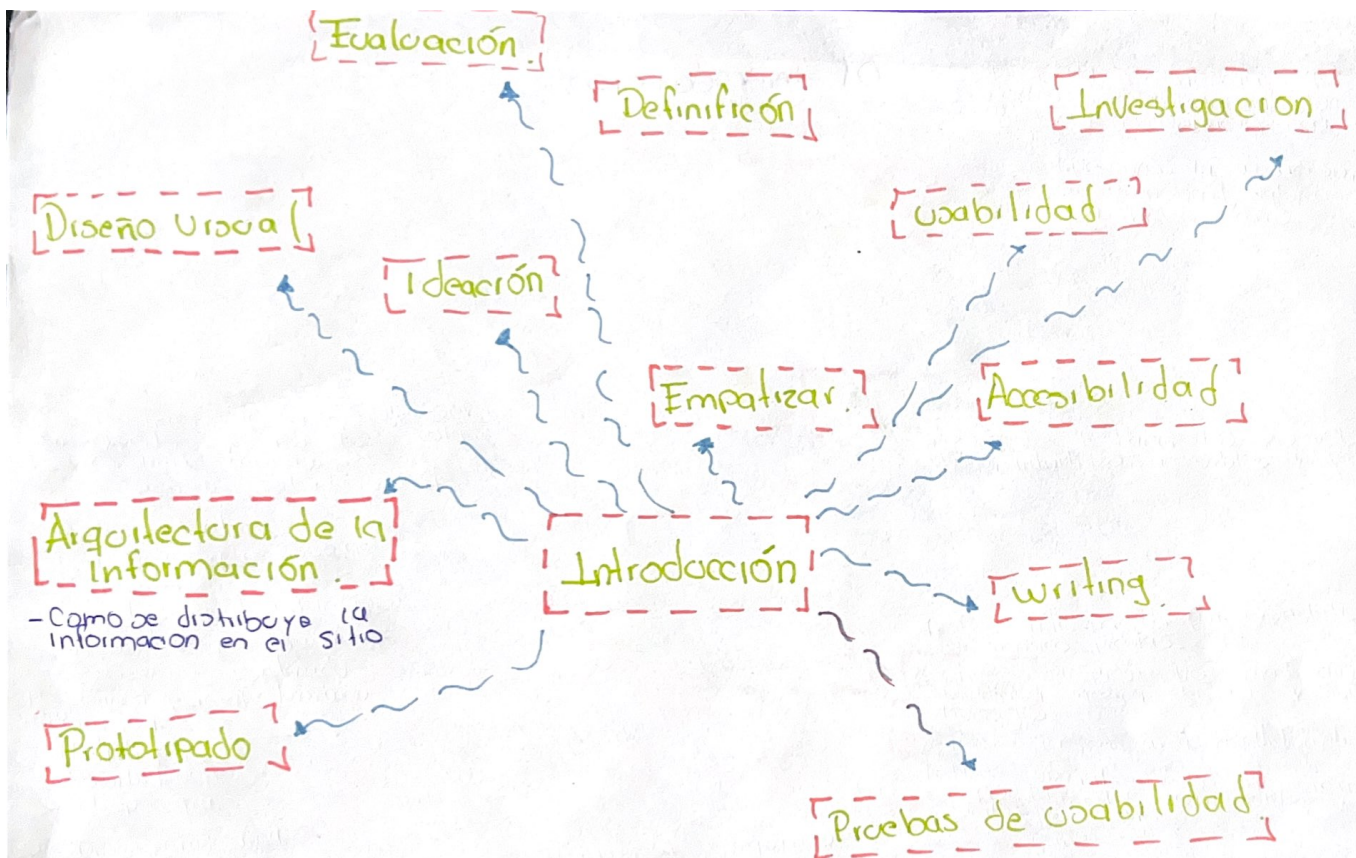 Evaluación.
Definificón
Investigacion
Diseño Visual
usabilidad
Ideación
Empatizar.
Accesibilidad
Arquitectura de la
información.
- Como se distribuye la
información en el sitio
Introducción
writing.
Prototipado
Pruebas de usabilidad.